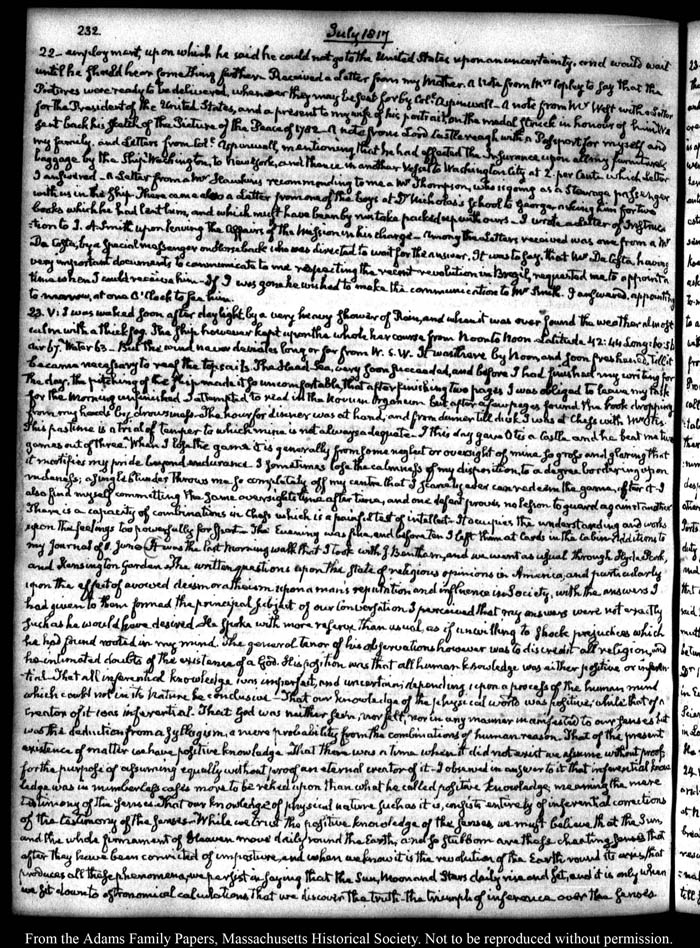 232.
July 1817
22— employment, upon which he said he could not go to the United States upon an uncertainty, and would wait
until he should hear something further— Received a Letter from my Mother. A Note from Mrs Copley to say that the
Pictures were ready to be delivered, whenever they may be sent for by Col: Aspinwall— A note from Mr West with a Letter
for the President of the United States, and a present to my wife of his portrait, on the medal struck in honour of him. We
sent back his Sketch of the Picture of the Peace of 1782— A note from Lord Castlereagh with a Passport for myself and
my family, and Letters from Col: Aspinwall, mentioning that he had effected the Insurance upon all my furniture &
baggage by the Ship Washington, to New York, and thence in another Vessel to Washington City at 2. per Cent. which Letter
I answered— A Letter from a Mr recommending to me a Mr Thompson, who is going as a Steerage passenger
with us in the Ship. There came also a Letter from one of the boys at Dr Nicholas's School to George, asking him for two
books which he had lent him, and which must have been by mistake packed up with ours— I wrote a Letter of Instruc
tion to J. A. Smith upon leaving the affairs of the Mission in his charge— Among the Letters received was one from a Mr
Da Costa, by a special messenger on horseback who was directed to wait for the answer. It was to say, that Mr Da Costa, having
very important documents to communicate to me respecting the recent revolution in Brazil, requested me to appoint a
time when I could receive him— If I was gone he wished to make the communication to Mr Smith. I answered, appointing
to-morrow, at one O'Clock to see him.
23. VI: I was waked soon after daylight by a very heavy shower of Rain, and when it was over found the weather almost
calm with a thick fog. The Ship however kept upon the whole her course from Noon to Noon Latitude 42:44. Long: 60:51
Air 67. Water 63— But the wind never deviates long or far from W. S. W. It was there by Noon, and soon freshened, till it
became necessary to reef the topsails. The Head-Sea, very soon succeeded, and before I had finished my writing for
the day, the pitching of the Ship made it so uncomfortable that after finishing two pages I was obliged to leave my task
for the Morning unfinished. I attempted to read in the Novum Organum but after a few pages found the book dropping
from my hands by drowsiness. The hour for dinner was at hand, and from dinner till dusk I was at Chess with Mr Otis.
This pastime is a trial of temper to which mine is not always adequate— I this day gave Otis a Castle and he beat me two
games out of three. When I lose the game it is generally from some neglect or oversight of mine so gross and glaring that
it mortifies my pride beyond endurance. I sometimes lose the calmness of my disposition, to a degree bordering upon
meanness; a single blunder throws me so completely off my centre that I scarcely ever can redeem the game, after it I
also find myself committing the same oversight time after time, and one defeat proves no lesson to guard against another
There is a capacity of combinations in Chess which is a painful test of intellect. It occupies the understanding and works
upon the feelings too powerfully for sport— The Evening was fine, and before ten I left them at cards in the Cabin. Additions to
my Journal of 8. June. It was the last Morning walk that I took with J Bentham, and we went as usual through Hyde Park,
and Kensington Garden. The written questions upon the state of religious opinions in America, and particularly
upon the effect of avowed deism or atheism upon a man's reputation and influence in Society, with the answers I
had given to them formed the principal subject of our Conversation I perceived that my answers were not exactly
such as he would have desired. He spoke with more reserve than usual, as if unwilling to shock prejudices which
he had found rooted in my mind. The general tenor of his observations however was to discredit all religion, and
he intimated doubts of the existence of a God. His position was that all human knowledge was either positive or inferen
tial. That all inferential knowledge was imperfect, and uncertain; depending upon a process of the human mind
which could not in its Nature be conclusive— That our knowledge of the physical world was positive, while that of a
Creator of it was inferential. That God was neither seen, nor felt, nor in any manner manifested to our senses but
was the deduction from a Syllogism, a mere probability from the combinations of human reason. That of the present
existence of matter we have positive knowledge. That there was a time when it did not exist we assume without proof,
for the purpose of assuming equally without proof an eternal creator of it— I observed in answer to it that inferential know
ledge was in numberless cases more to be relied upon than what he called positive knowledge, meaning the mere
testimony of the Senses. That our knowledge of physical nature such as it is, consists entirely of inferential corrections
of the testimony of the Senses— While we trust the positive knowledge of the senses we must believe that the Sun
and the whole firmament of Heaven move daily round the Earth, and so stubborn are these cheating senses that
after they have been convicted of imposture, and when we know it is the revolution of the Earth round its axis, that
produces all these phenomena, we persist in saying that the Sun, Moon and Stars daily rise and set, and it is only when
we sit down to astronomical calculations that we discover the truth— the triumph of inference over the Senses
From the Adams Family Papers, Massachusetts Historical Society. Not to be reproduced without permission.